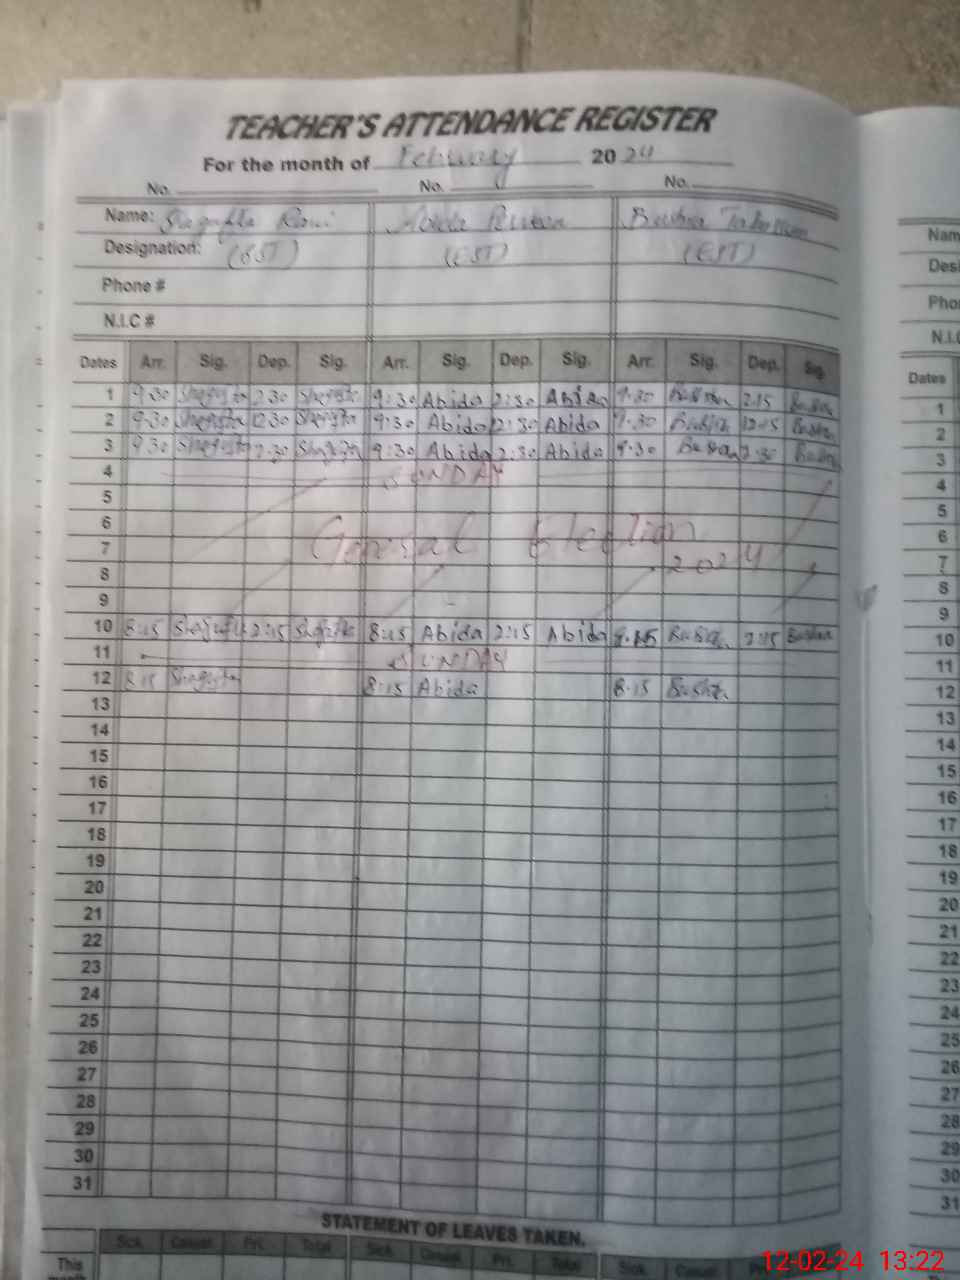 TEACHER'S ATTENDANCE REGISTER
For the month of February 2024
No. No. No.
Name: Rani Abida Bushra
Designation: (EST) (EST)
Phone #
N.I.C #
Dates Arr. Sig. Dep. Sig. Arr. Sig. Dep. Sig. Arr. Sig. Dep. Sig.
1 9:30 2:30 9:30 Abida 2:30 Abida 9:30 Bushra 2:15 Bushra
2 9:30 12:30 9:30 Abida 12:30 Abida 9:30 Bushra 12:15 Bushra
3 9:30 2:30 9:30 Abida 2:30 Abida 9:30 Bushra 2:30 Bushra
4 SUNDAY
5
6
7 General Election
8 2024
9
10 8:15 2:15 8:15 Abida 2:15 Abida Bushra 2:15 Bushra
11 SUNDAY
12 8:15 8:15 Abida 8:15 Bushra
13
14
15
16
17
18
19
20
21
22
23
24
25
26
27
28
29
30
31
STATEMENT OF LEAVES TAKEN.
Sick Casual Pri. Total Sick Casual Pri. Total Sick Casual
This
month
Nam
Desi
Pho
N.I.C
Dates
1
2
3
4
5
6
7
8
9
10
11
12
13
14
15
16
17
18
19
20
21
22
23
24
25
26
27
28
29
30
31
12-02-24 13:22